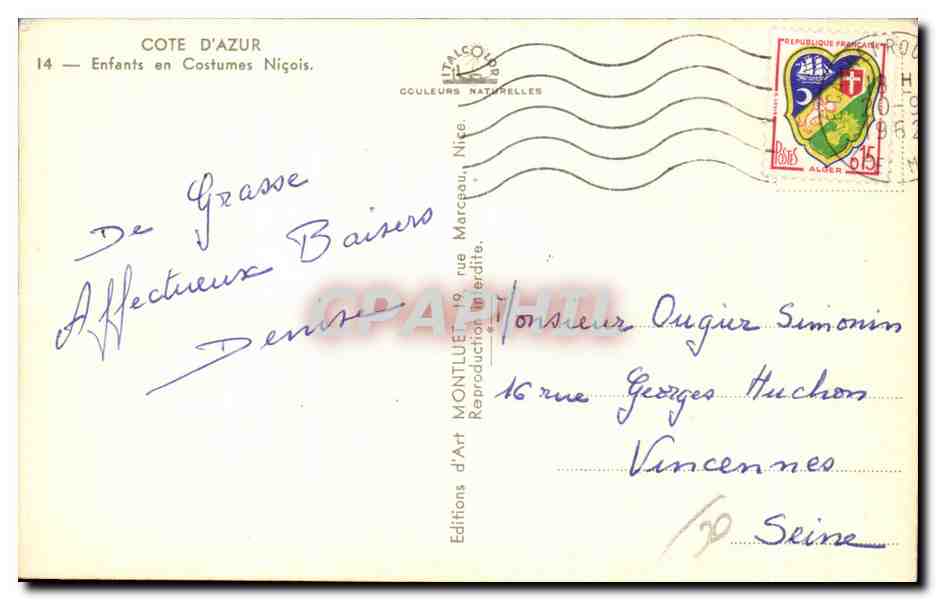 COTE D'AZUR
14 — Enfants en Costumes Niçois.
ITALCOLOR
COULEURS NATURELLES
REPUBLIQUE FRANÇAISE
POSTES
0,15F
ALGER
20-9
1962
De Grasse
Affectueux Baisers
Denise
Editions d'Art MONTLUET 19, rue Marceau, Nice.
Reproduction interdite.
CPAPHIL
Monsieur Ougier Simonin
16 rue Georges Huchon
Vincennes
Seine
30